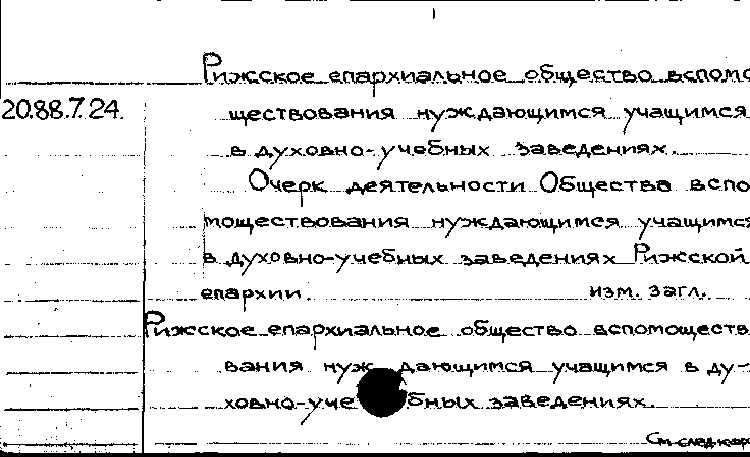 Рижское епархиальное общество вспомо
20.88.7.24. ществования нуждающимся учащимся
в духовно-учебных заведениях.
Очерк деятельности Общества вспо
моществования нуждающимся учащимся
в духовно-учебных заведениях Рижской
епархии. изм. загл.
Рижское епархиальное общество вспомощест
вания нуж дающимся учащимся в ду-
ховно-уче бных заведениях.
См. след. кар